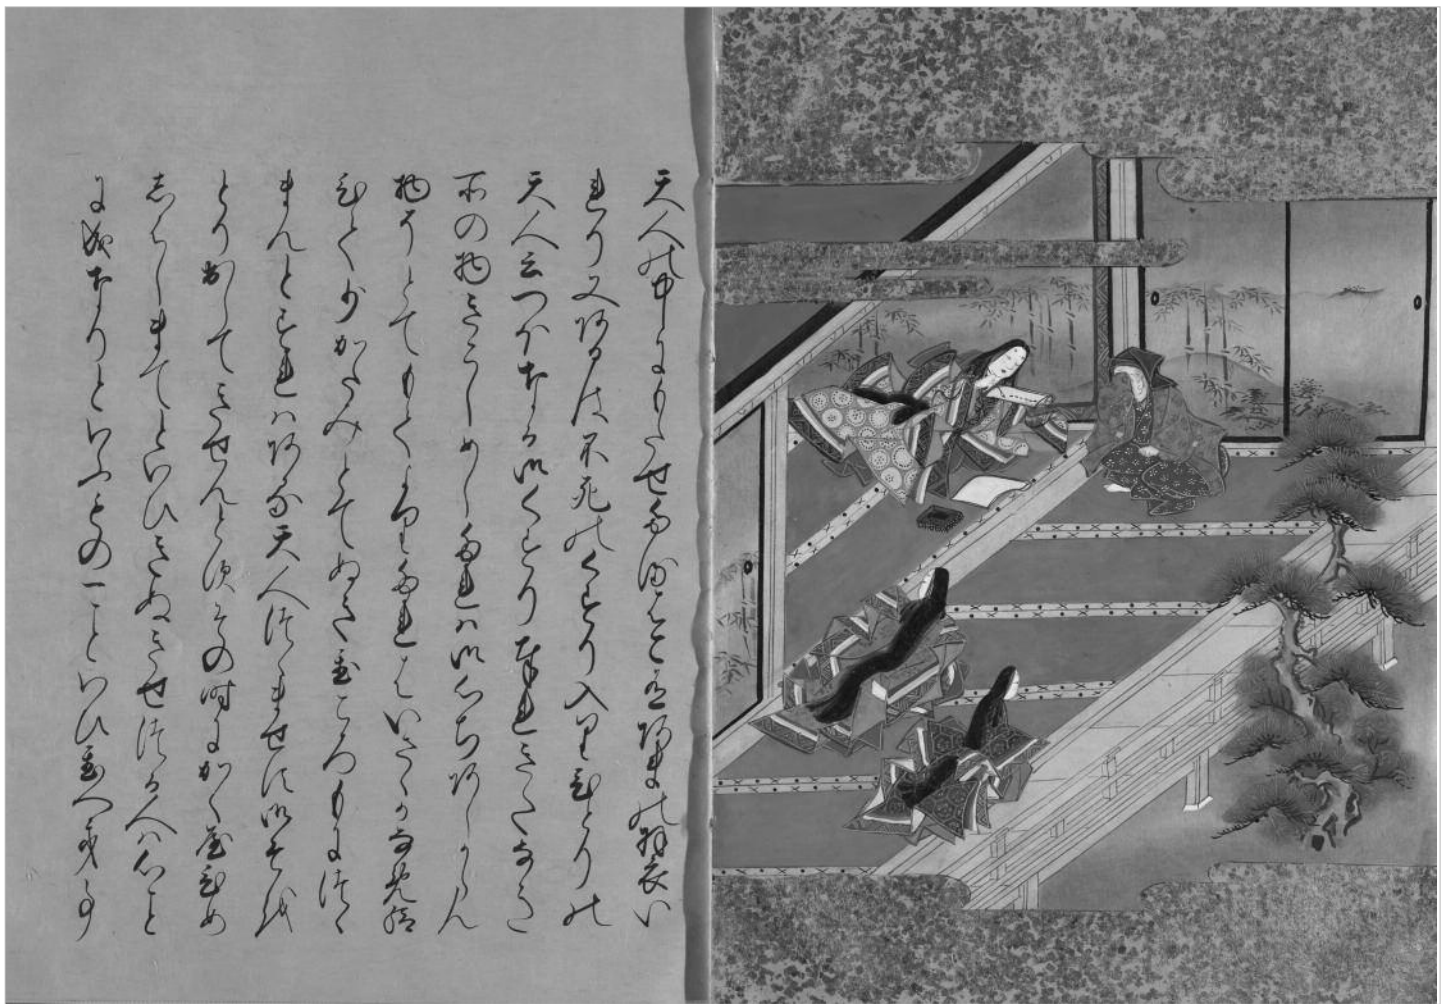 天人の中にもたせたるはこ有あまの羽衣い
れり又あるは不死のくすり入りひとりの
天人云つほなる御くすり奉れきたなき
所の物きこしめしたれは御心ちあしからん
物そとてもてよりたれはいさゝかなめ給
ひてすこしかたみとてぬき置ころもにつゝ
まんとすれはある天人つゝませす御そを
とり出してきせんとす其の時にかくや姫
しはしまてといひきぬきせつる人は心こと
に成なりといふもの一こといひ置へき事